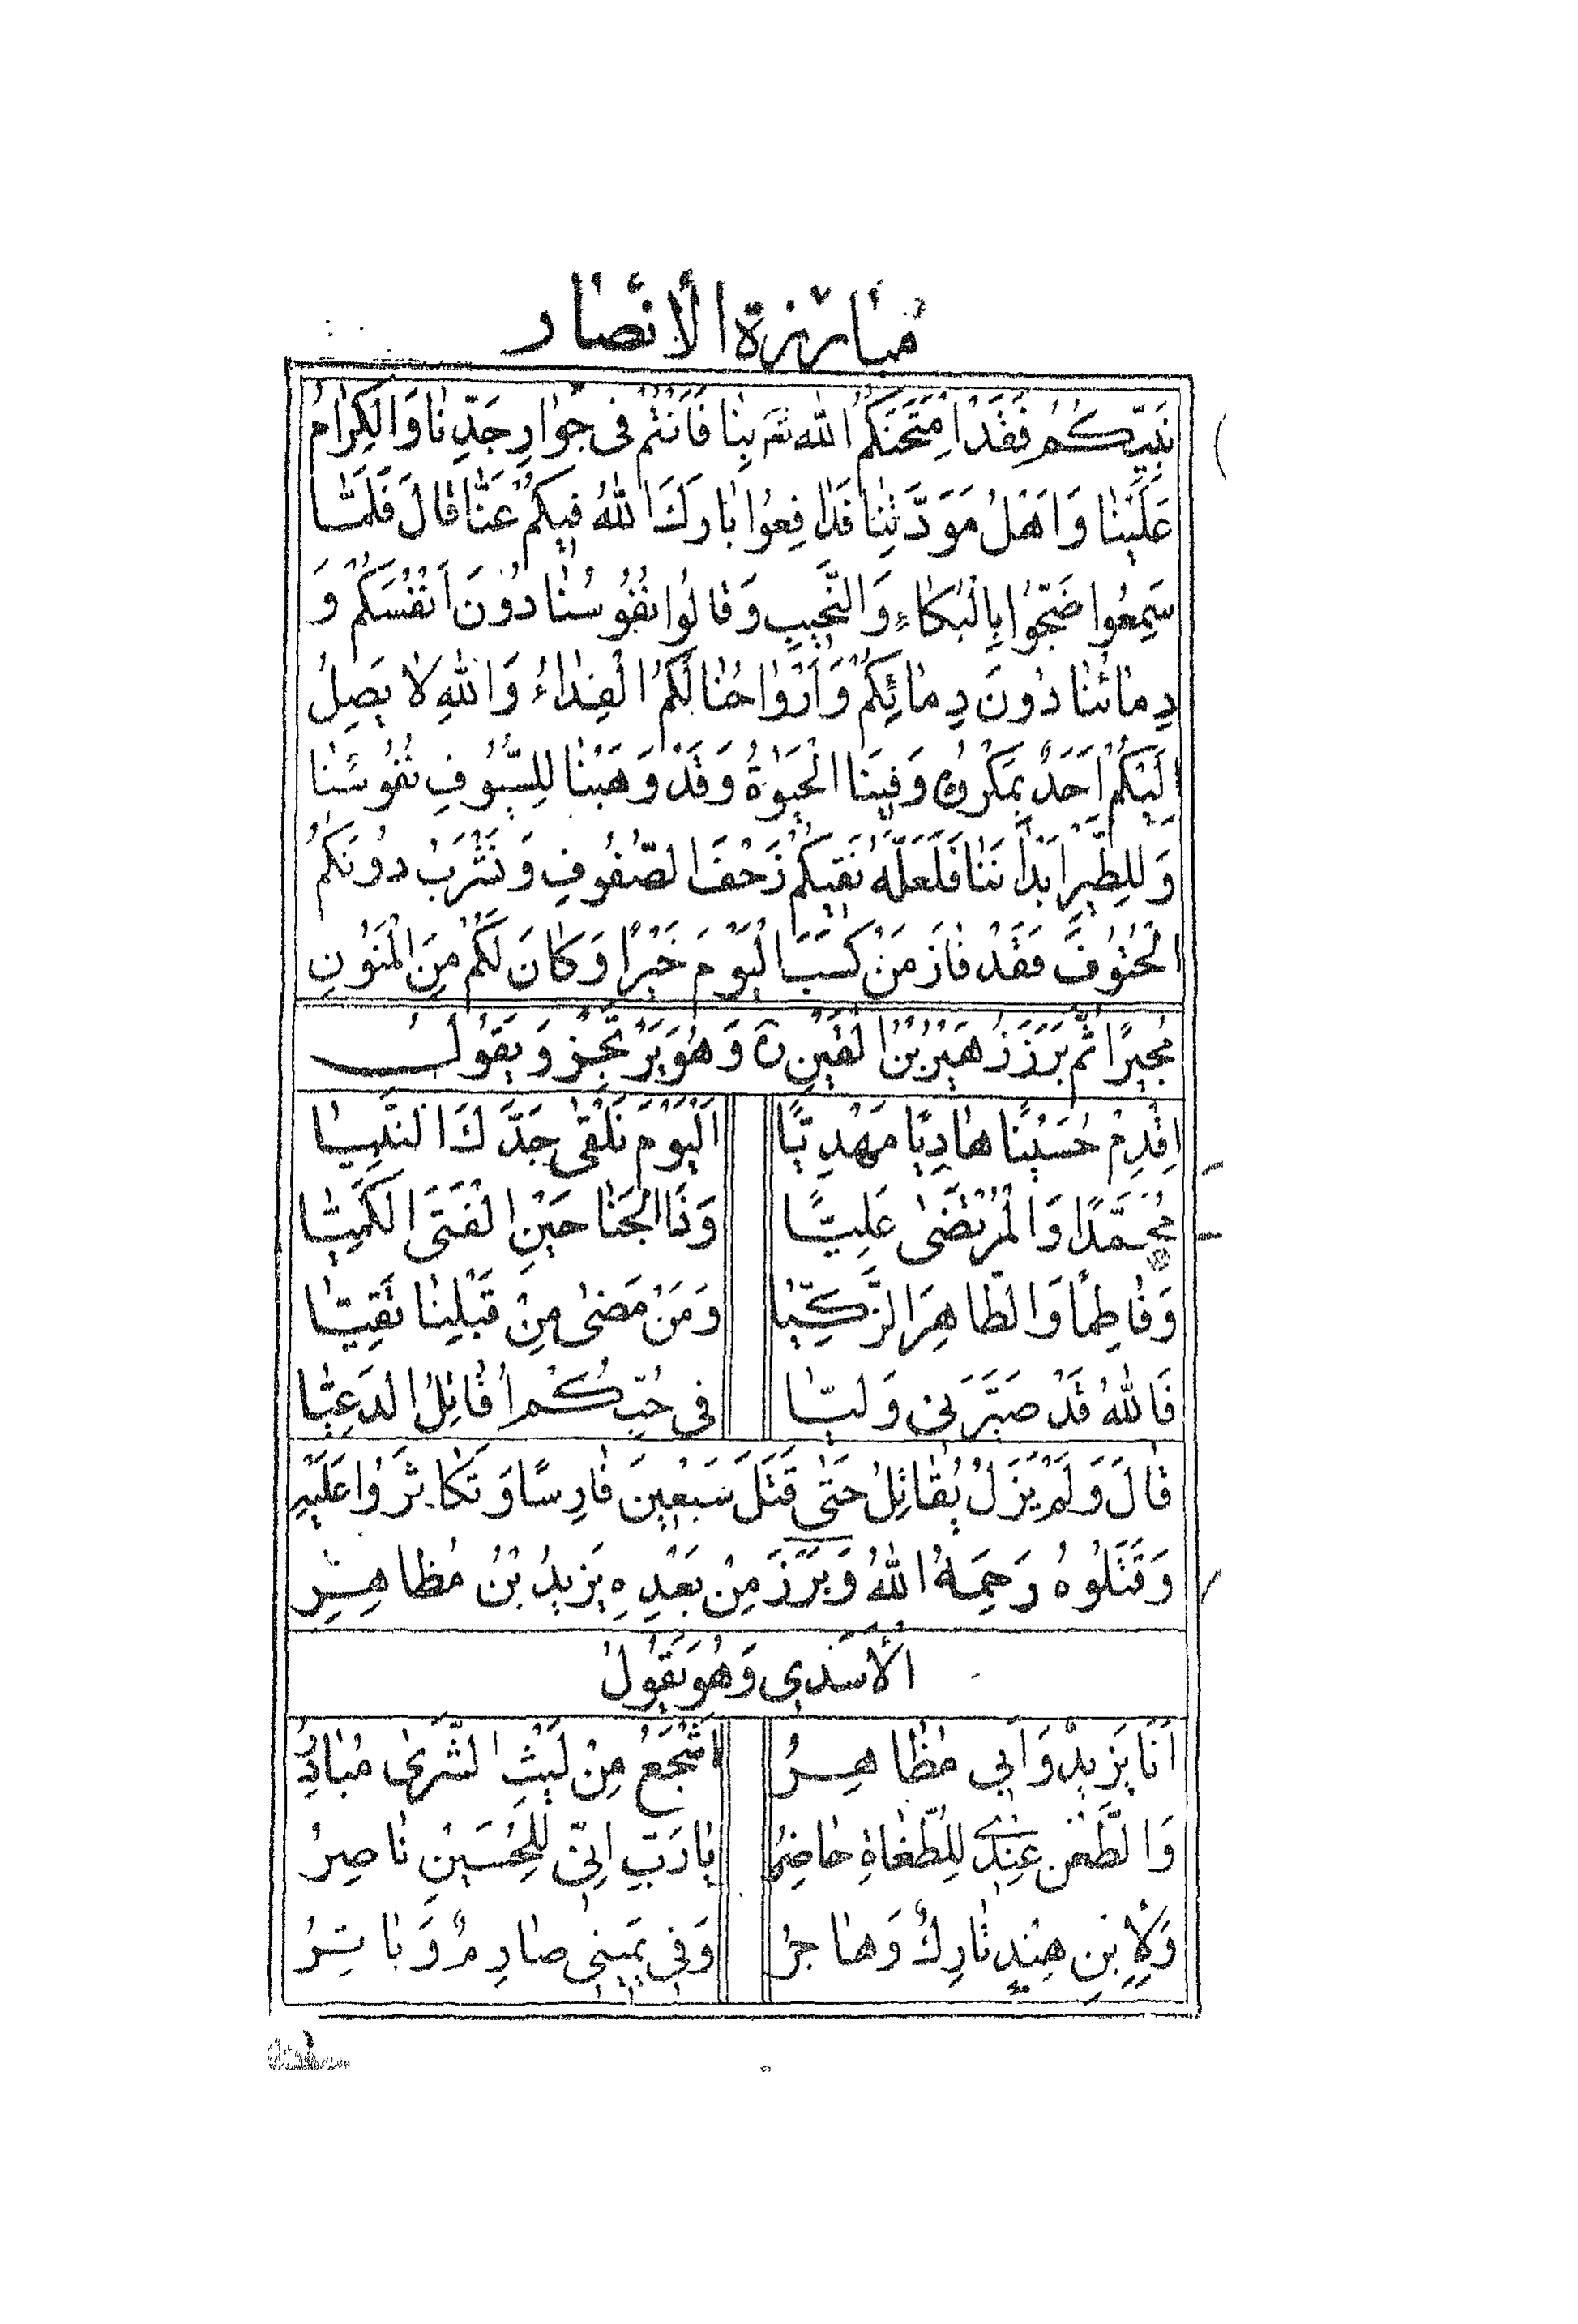 مبارزة الأنصار
نَبِيِّكُمْ فَقَدْ اِمْتَحَنَكُمُ اللهُ تَعَ بِنٰا فَاَنْتُمْ فى جَوٰارِ جَدِّنٰا وَالْكِرٰامُ
عَلَيْنٰا وَاَهْلُ مَوَدَّتِنٰا فَدٰافِعُوا بٰارَكَ اللهُ فيكُمْ عَنّٰا قٰالَ فَلَمّٰا
سَمِعُوا ضَجّوُا بِالْبُكٰاءِ وَالنَّحيبِ وَقٰالوُا نُفُوسُنٰا دوُنَ اَنْفُسِكُمْ وَ
دِمٰائُنٰا دوُنَ دِمٰائِكُمْ وَاَرْوٰاحُنٰا لَكُمُ الْفِدٰاءُ وَاللهِ لاٰ يَصِلُ
اِلَيْكُمْ اَحَدٌ بِمَكْرُوهٍ وَفينَا الْحَيٰوةُ وَقَدْ وَهَبْنٰا لِلسُّيُوفِ نُفُوسَنٰا
وَلِلطَّيْرِ اَبْدٰانَنٰا فَلَعَلَّهُ نَقيكُمْ زَحْفَ الصُّفُوفِ وَنَشْرَبُ دُونَكُمُ
الْحُتُوفَ فَقَدْ فٰازَ مَنْ كَسَبَ الْيَوْمَ خَيْرًا وَكٰانَ لَكُمْ مِنَ الْمَنُونِ
مُجيرًا ثُمَّ بَرَزَ زُهَيْرُ بْنُ الْقَيْنِ رَه وَهُوَ يَرْتَجِزُ وَيَقُولُ
اِقْدِمْ حُسَيْنًا هٰادِيًا مَهْدِيًّا اَلْيَوْمَ نَلْقٰى جَدَّكَ النَّبِيّٰا
مُحَمَّدًا وَالْمُرْتَضٰى عَلِيًّا وَذَا الْجَنٰاحَيْنِ الْفَتَى الْكَمِيّٰا
وَفٰاطِمًا وَالطّٰاهِرَ الزَّكِيّٰا وَمَنْ مَضٰى مِنْ قَبْلِنٰا تَقِيّٰا
فَاللهُ قَدْ صَيَّرَنى وَلِيّٰا فى حُبِّكُمْ اُقٰاتِلُ الدَعِيّٰا
قٰالَ وَلَمْ يَزَلْ يُقٰاتِلُ حَتّٰى قَتَلَ سَبْعينَ فٰارِسًا وَتَكٰاثَرُوا عَلَيْهِ
وَقَتَلُوهُ رَحِمَهُ اللهُ وَبَرَزَ مِنْ بَعْدِهِ يَزيدُ بْنُ مُظٰاهِرٍ
الْأَسَدِي وَهُوَ يَقُولُ
اَنَا يَزيدُ وَاَبي مُظٰاهِرُ اَشْجَعُ مِنْ لَيْثِ الشَّرىٰ مُبٰادِرُ
وَالطَّعْنُ عِنْدى لِلطُّغٰاةِ حٰاضِرُ يٰا رَبِّ اِنّى لِلْحُسَيْنِ نٰاصِرُ
وَلاِبْنِ هِنْدٍ تٰارِكٌ وَهٰاجِرُ وَفى يَمينى صٰارِمٌ وَبٰاتِرُ